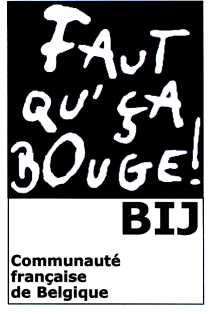 FAUT
QU'ÇA
BOUGE!
BIJ
Communauté
française
de Belgique